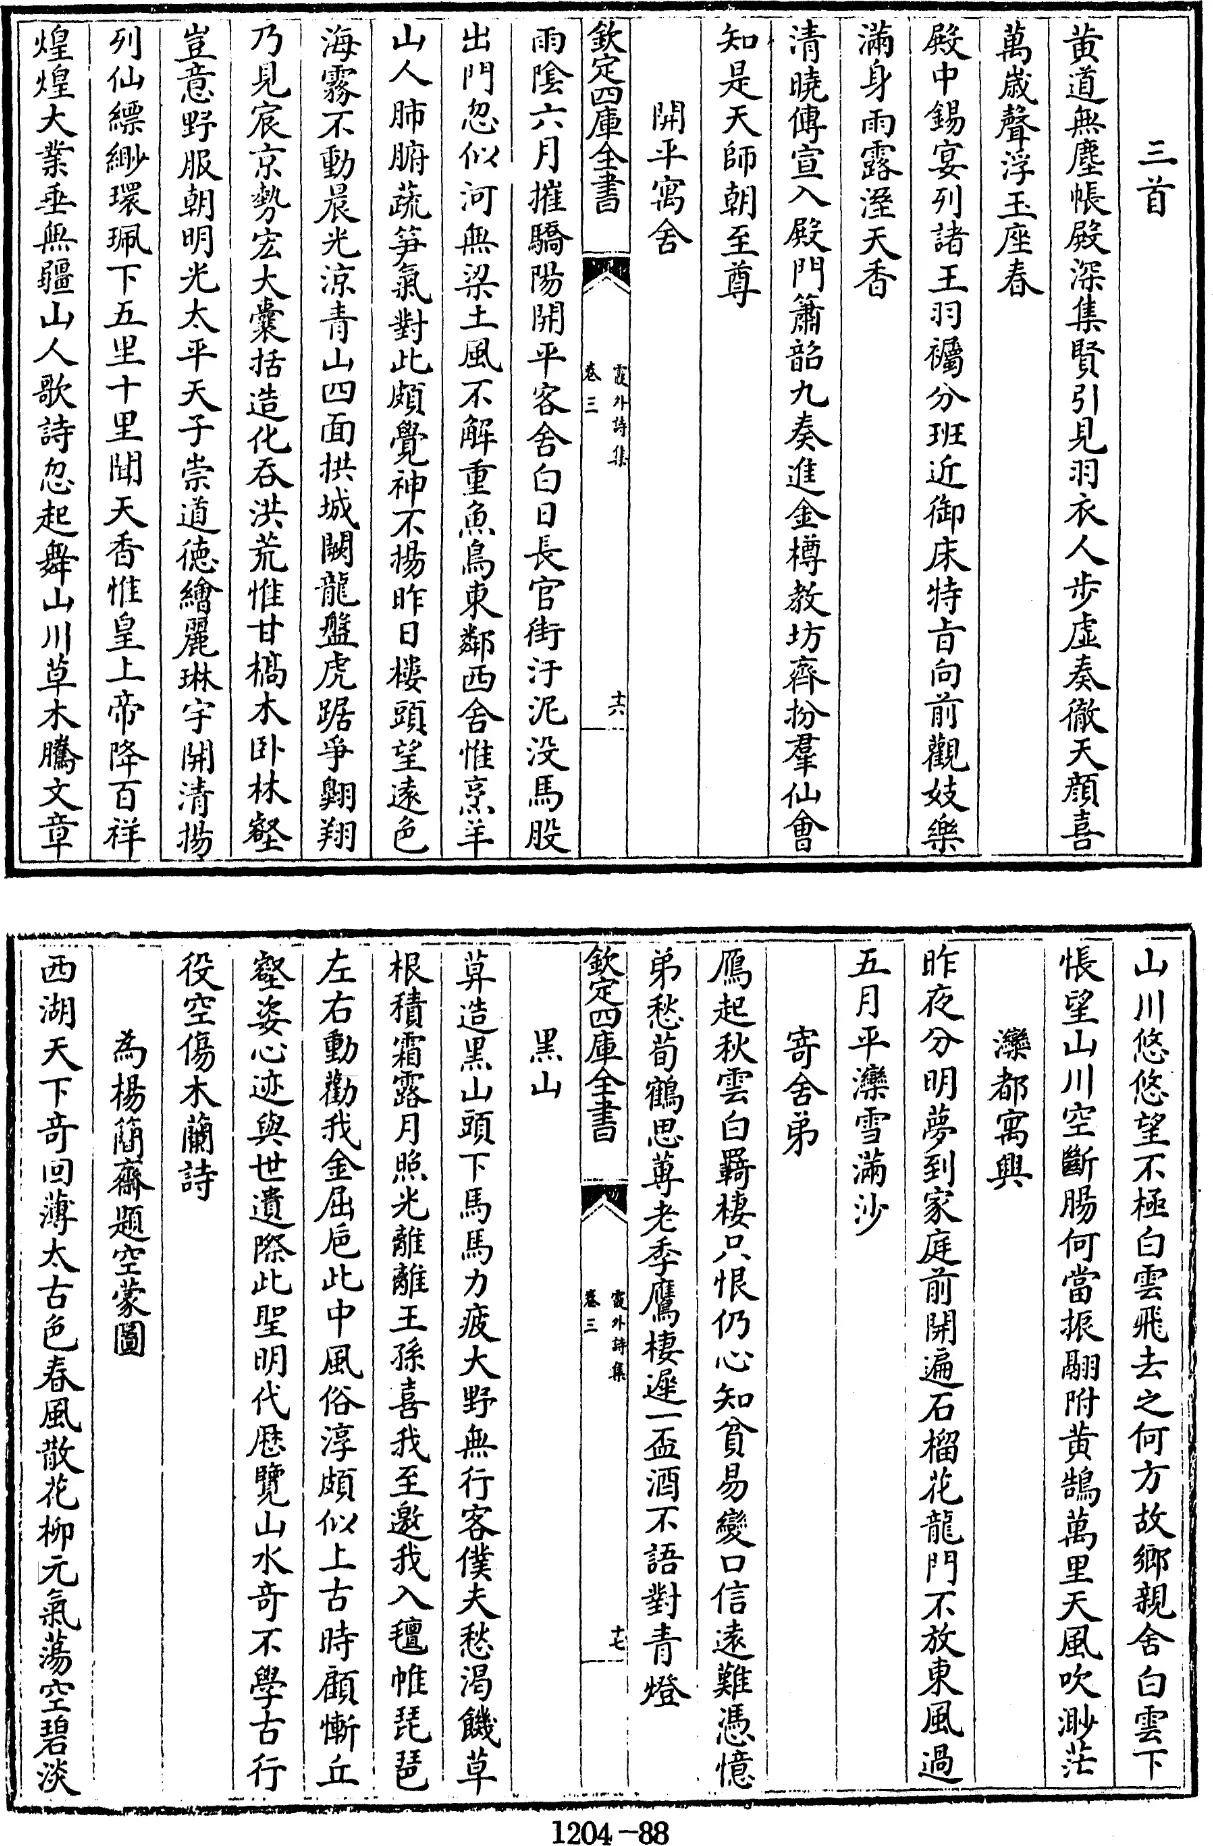 三首
黄道無塵帳殿深集賢引見羽衣人步虛奏徹天顔喜
萬歳聲浮玉座春
殿中錫宴列諸王羽襹分班近御床特旨向前觀妓樂
滿身雨露溼天香
清曉傳宣入殿門簫韶九奏進金樽教坊齊扮羣仙會
知是天師朝至尊
開平寓舍
欽定四庫全書
霞外詩集
卷三
十六
雨陰六月摧驕陽開平客舍白日長官街汙泥没馬股
出門忽似河無梁土風不解重魚鳥東鄰西舍惟烹羊
山人肺腑蔬笋氣對此頗覺神不揚昨日樓頭望遠色
海霧不動晨光涼青山四面拱城闕龍盤虎踞爭翺翔
乃見宸京勢宏大囊括造化吞洪荒惟甘槁木卧林壑
豈意野服朝明光太平天子崇道徳繪麗琳宇開清揚
列仙縹緲環珮下五里十里聞天香惟皇上帝降百祥
煌煌大業垂無疆山人歌詩忽起舞山川草木騰文章
山川悠悠望不極白雲飛去之何方故鄉親舍白雲下
悵望山川空斷腸何當振翮附黄鵠萬里天風吹渺茫
灤都寓興
昨夜分明夢到家庭前開遍石榴花龍門不放東風過
五月平灤雪滿沙
寄舍弟
鴈起秋雲白羇棲只恨仍心知貧易變口信遠難憑憶
弟愁荀鶴思蓴老季鷹棲遲一盃酒不語對青燈
欽定四庫全書
霞外詩集
卷三
十七
黒山
萛造黒山頭下馬馬力疲大野無行客僕夫愁渴饑草
根積霜露月照光離離王孫喜我至邀我入氊帷琵琶
左右動勸我金屈巵此中風俗淳頗似上古時顧慚丘
壑姿心迹與世遺際此聖明代厯覽山水奇不學古行
役空傷木蘭詩
為楊簡齋題空蒙圖
西湖天下奇回薄太古色春風散花柳元氣蕩空碧淡
1204-88